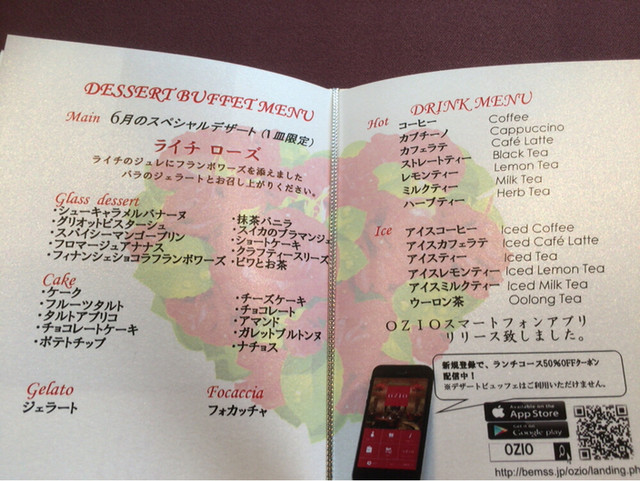 DESSERT BUFFET MENU
Main 6月のスペシャルデザート(1皿限定)
ライチ ローズ
ライチのジュレにフランボワーズを添えました
バラのジェラートとお召し上がりください。
Glass dessert
・シューキャラメルバナーヌ
・グリオットピスターシュ
・スパイシーマンゴープリン
・フロマージュアナナス
・フィナンシェショコラフランボワーズ
・抹茶バニラ
・スイカのブラマンジェ
・ショートケーキ
・クラフティースリーズ
・ビワとお茶
Cake
・ケーク
・フルーツタルト
・タルトアプリコ
・チョコレートケーキ
・ポテトチップ
・チーズケーキ
・チョコレート
・アマンド
・ガレットブルトンヌ
・ナチョス
Gelato
ジェラート
Focaccia
フォカッチャ
DRINK MENU
Hot コーヒー Coffee
カプチーノ Cappuccino
カフェラテ Café Latte
ストレートティー Black Tea
レモンティー Lemon Tea
ミルクティー Milk Tea
ハーブティー Herb Tea
Ice アイスコーヒー Iced Coffee
アイスカフェラテ Iced Café Latte
アイスティー Iced Tea
アイスレモンティー Iced Lemon Tea
アイスミルクティー Iced Milk Tea
ウーロン茶 Oolong Tea
OZIOスマートフォンアプリ
リリース致しました。
新規登録で、ランチコース50%OFFクーポン
配信中！
※デザートビュッフェはご利用いただけません。
OZIO
Available on the
App Store
GET IT ON
Google play
OZIO
http://bemss.jp/ozio/landing.ph